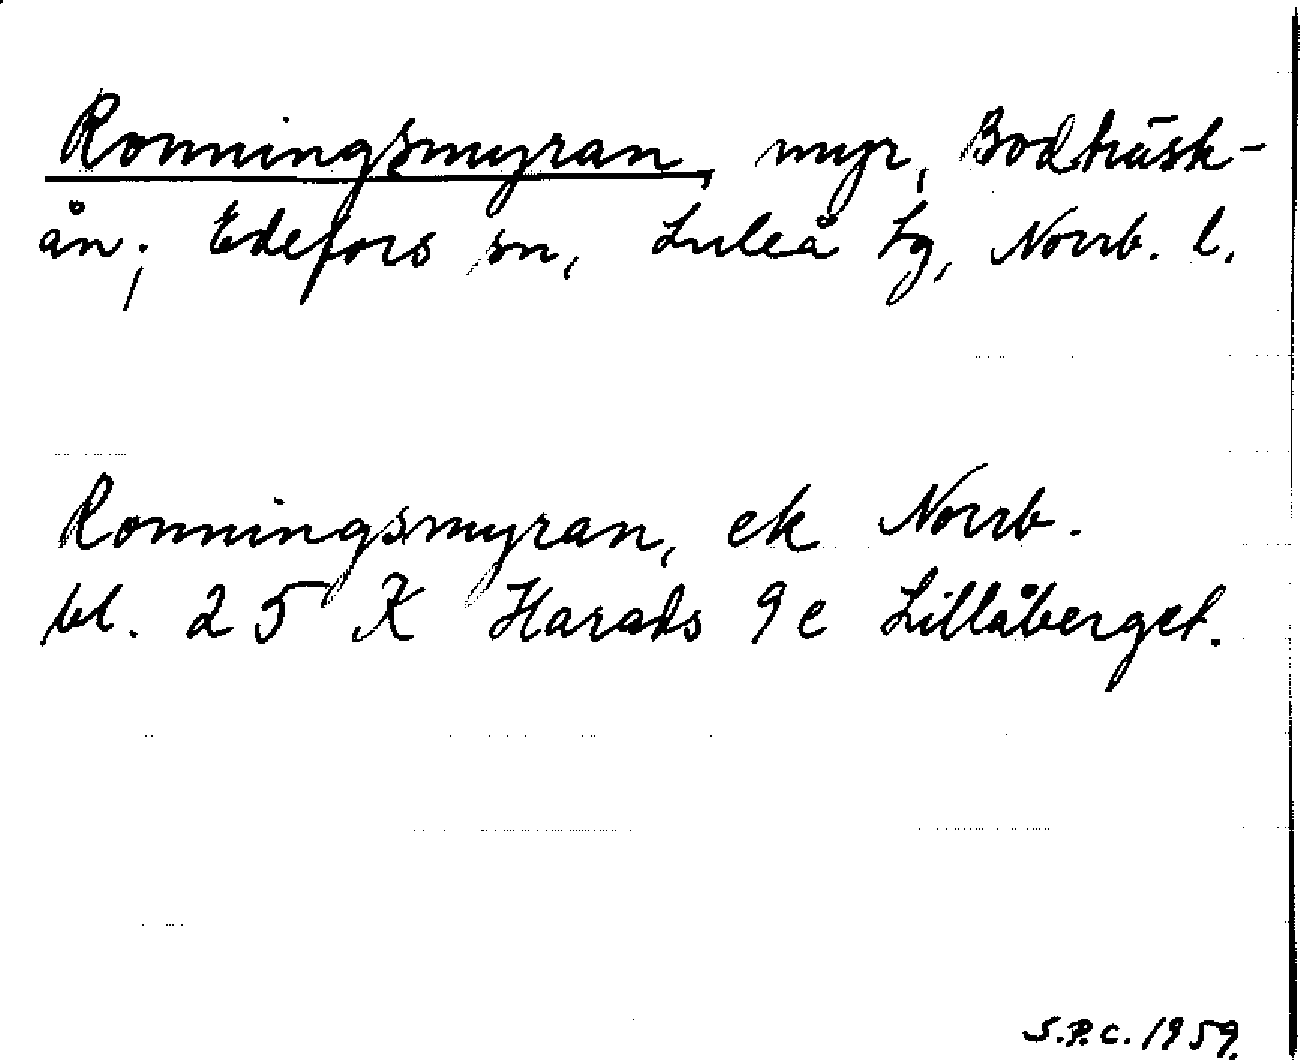 Ronningsmyran, myr, Bodträsk-
ån; Edefors sn, Luleå tg, Norrb. l.
Ronningsmyran, ek Norrb.
bl. 25 K Harads 9 e Lillåberget.
S.P.C. 1959.